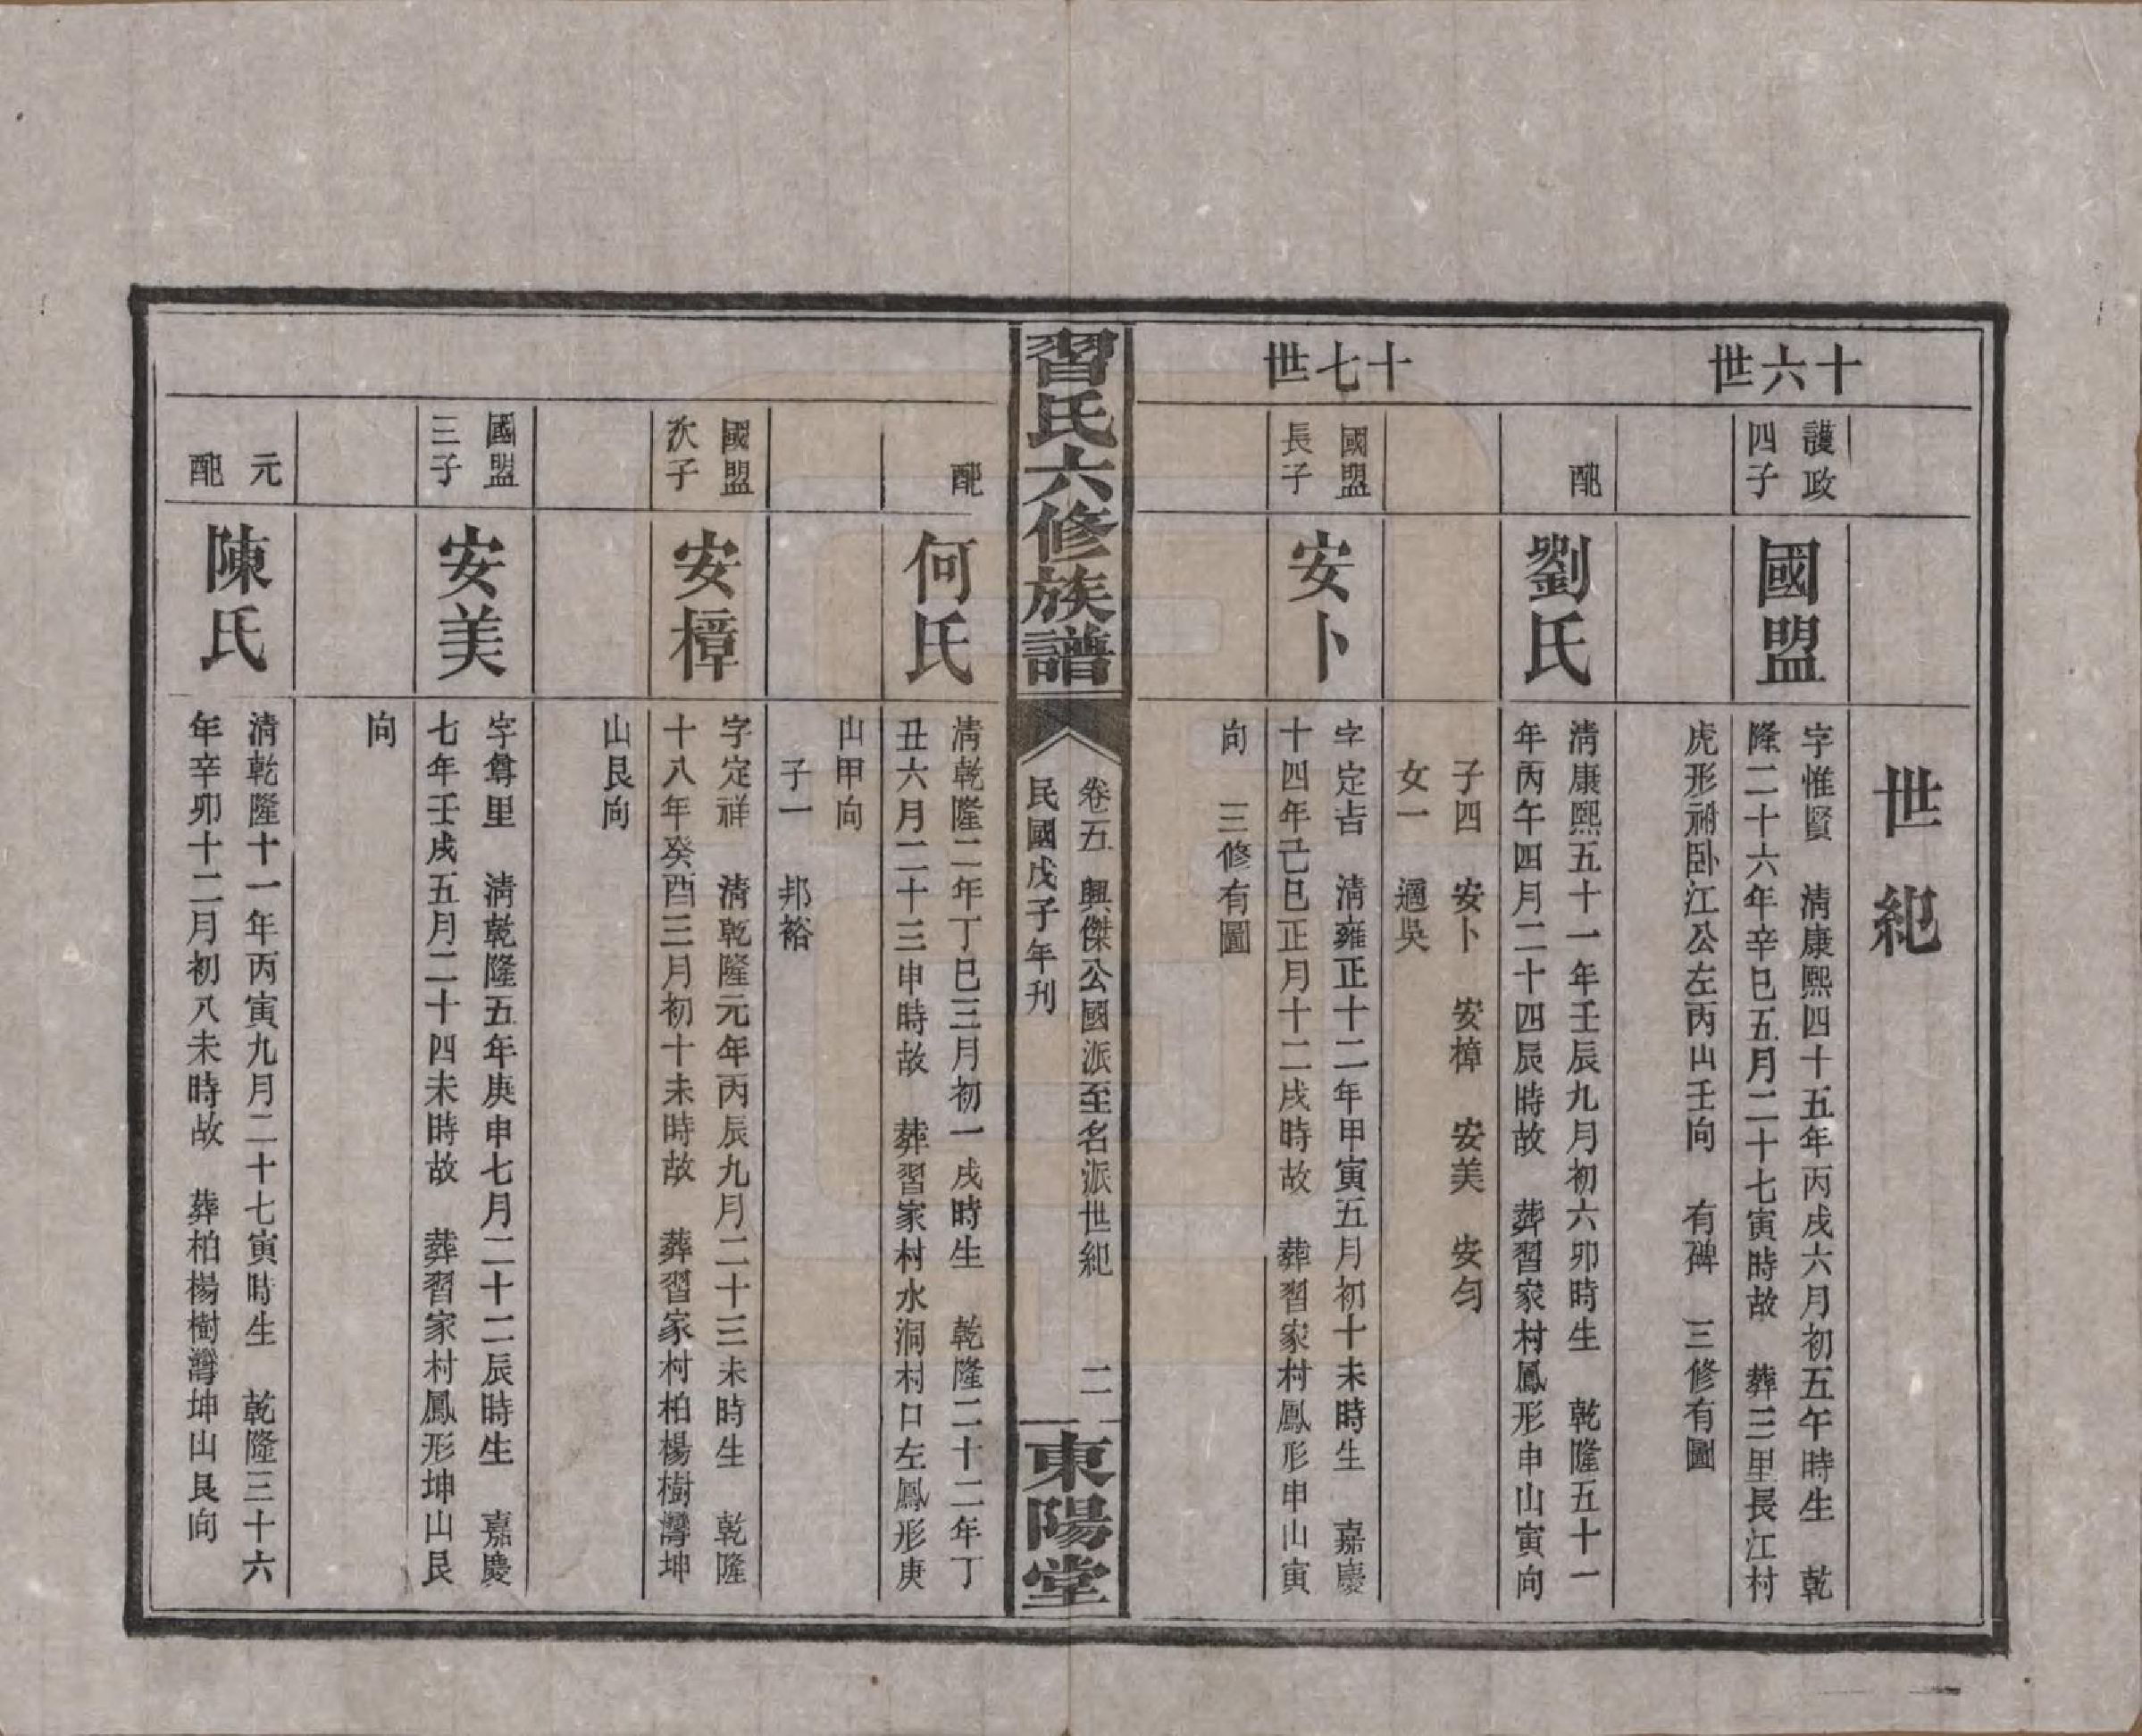 世紀
十六世
護政
四子
國盟
字惟賢　清康熙四十五年丙戌六月初五午時生　乾
隆二十六年辛巳五月二十七寅時故　葬三里長江村
虎形祔卧江公左丙山壬向　有碑　三修有圖
配
劉氏
清康熙五十一年壬辰九月初六卯時生　乾隆五十一
年丙午四月二十四辰時故　葬習家村鳳形申山寅向
子四　安卜　安樟　安美　安勻
女一　適吳
十七世
國盟
長子
安卜
字定吉　清雍正十二年甲寅五月初十未時生　嘉慶
十四年己巳正月十二戌時故　葬習家村鳳形申山寅
向　三修有圖
習氏六修族譜
卷五　興傑公國派至名派世紀　二
民國戊子年刊
東陽堂
配
何氏
清乾隆二年丁巳三月初一戌時生　乾隆二十二年丁
丑六月二十三申時故　葬習家村水洞村口左鳳形庚
山甲向
子一　邦裕
國盟
次子
安樟
字定祥　清乾隆元年丙辰九月二十三未時生　乾隆
十八年癸酉三月初十未時故　葬習家村柏楊樹灣坤
山艮向
國盟
三子
安美
字尊里　清乾隆五年庚申七月二十二辰時生　嘉慶
七年壬戌五月二十四未時故　葬習家村鳳形坤山艮
向
元
配
陳氏
清乾隆十一年丙寅九月二十七寅時生　乾隆三十六
年辛卯十二月初八未時故　葬柏楊樹灣坤山艮向